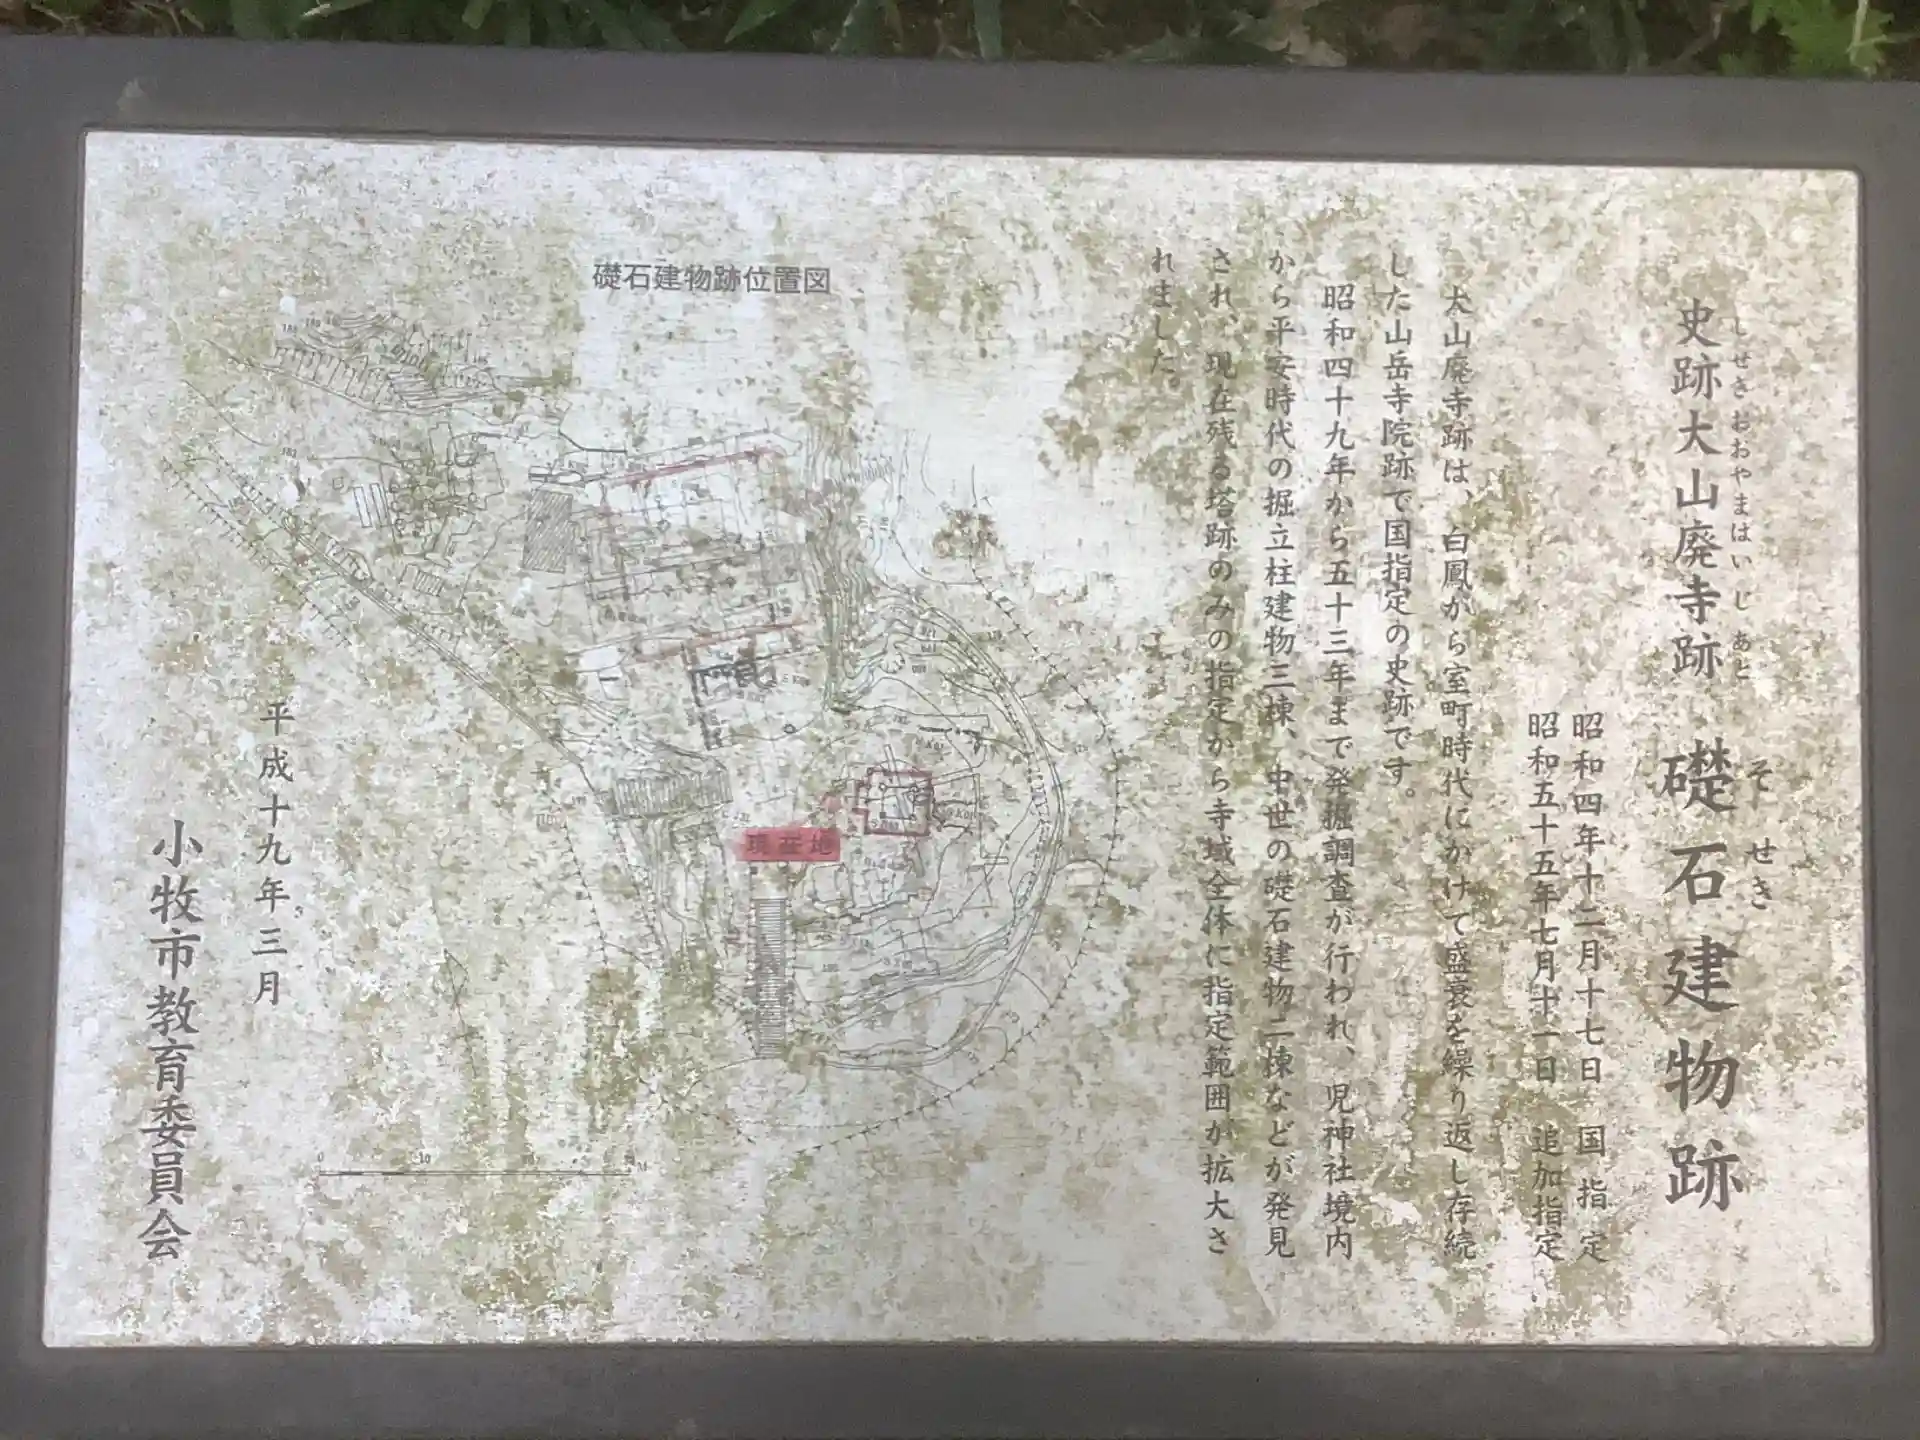 史跡大山廃寺跡 礎石建物跡
しせきおおやまはいじあと そせき
昭和四年十二月十七日 国指定
昭和五十五年七月十一日 追加指定
大山廃寺跡は、白鳳から室町時代にかけて盛衰を繰り返し存続
した山岳寺院跡で国指定の史跡です。
昭和四十九年から五十三年まで発掘調査が行われ、児神社境内
から平安時代の掘立柱建物三棟、中世の礎石建物二棟などが発見
され、現在残る塔跡のみの指定から寺域全体に指定範囲が拡大さ
れました。
礎石建物跡位置図
現在地
平成十九年三月
小牧市教育委員会